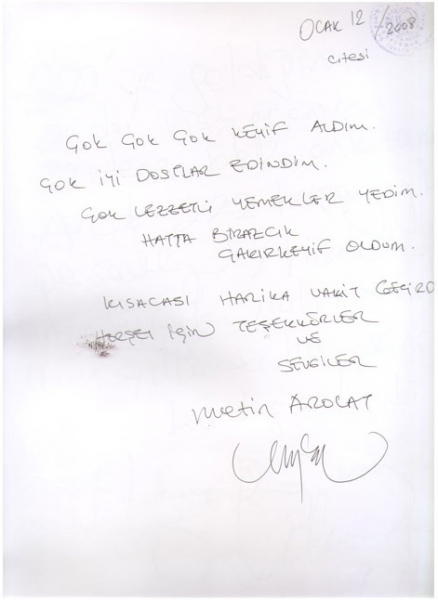 OCAK 12 / 2008
CTESİ
ÇOK ÇOK ÇOK KEYİF ALDIM.
ÇOK İYİ DOSTLAR EDİNDİM.
ÇOK LEZZETLİ YEMEKLER YEDİM.
HATTA BİRAZCIK
ÇAKIRKEYİF OLDUM.
KISACASI HARİKA VAKİT GEÇİRD
HERŞEY İÇİN TEŞEKKÜRLER
VE
SEVGİLER
Metin AROLAT